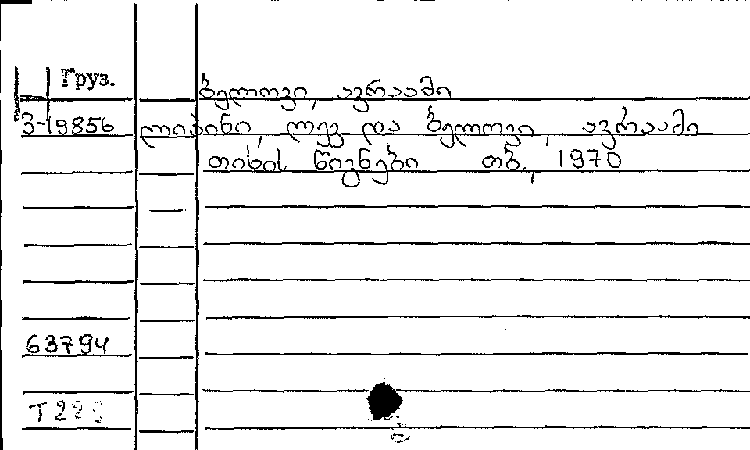 Груз.
ბელოვი, ავრაამი
3-19856 ლიპინი, ლევ და ბელოვი, ავრაამი
თიხის წიგნები თბ., 1970
63794